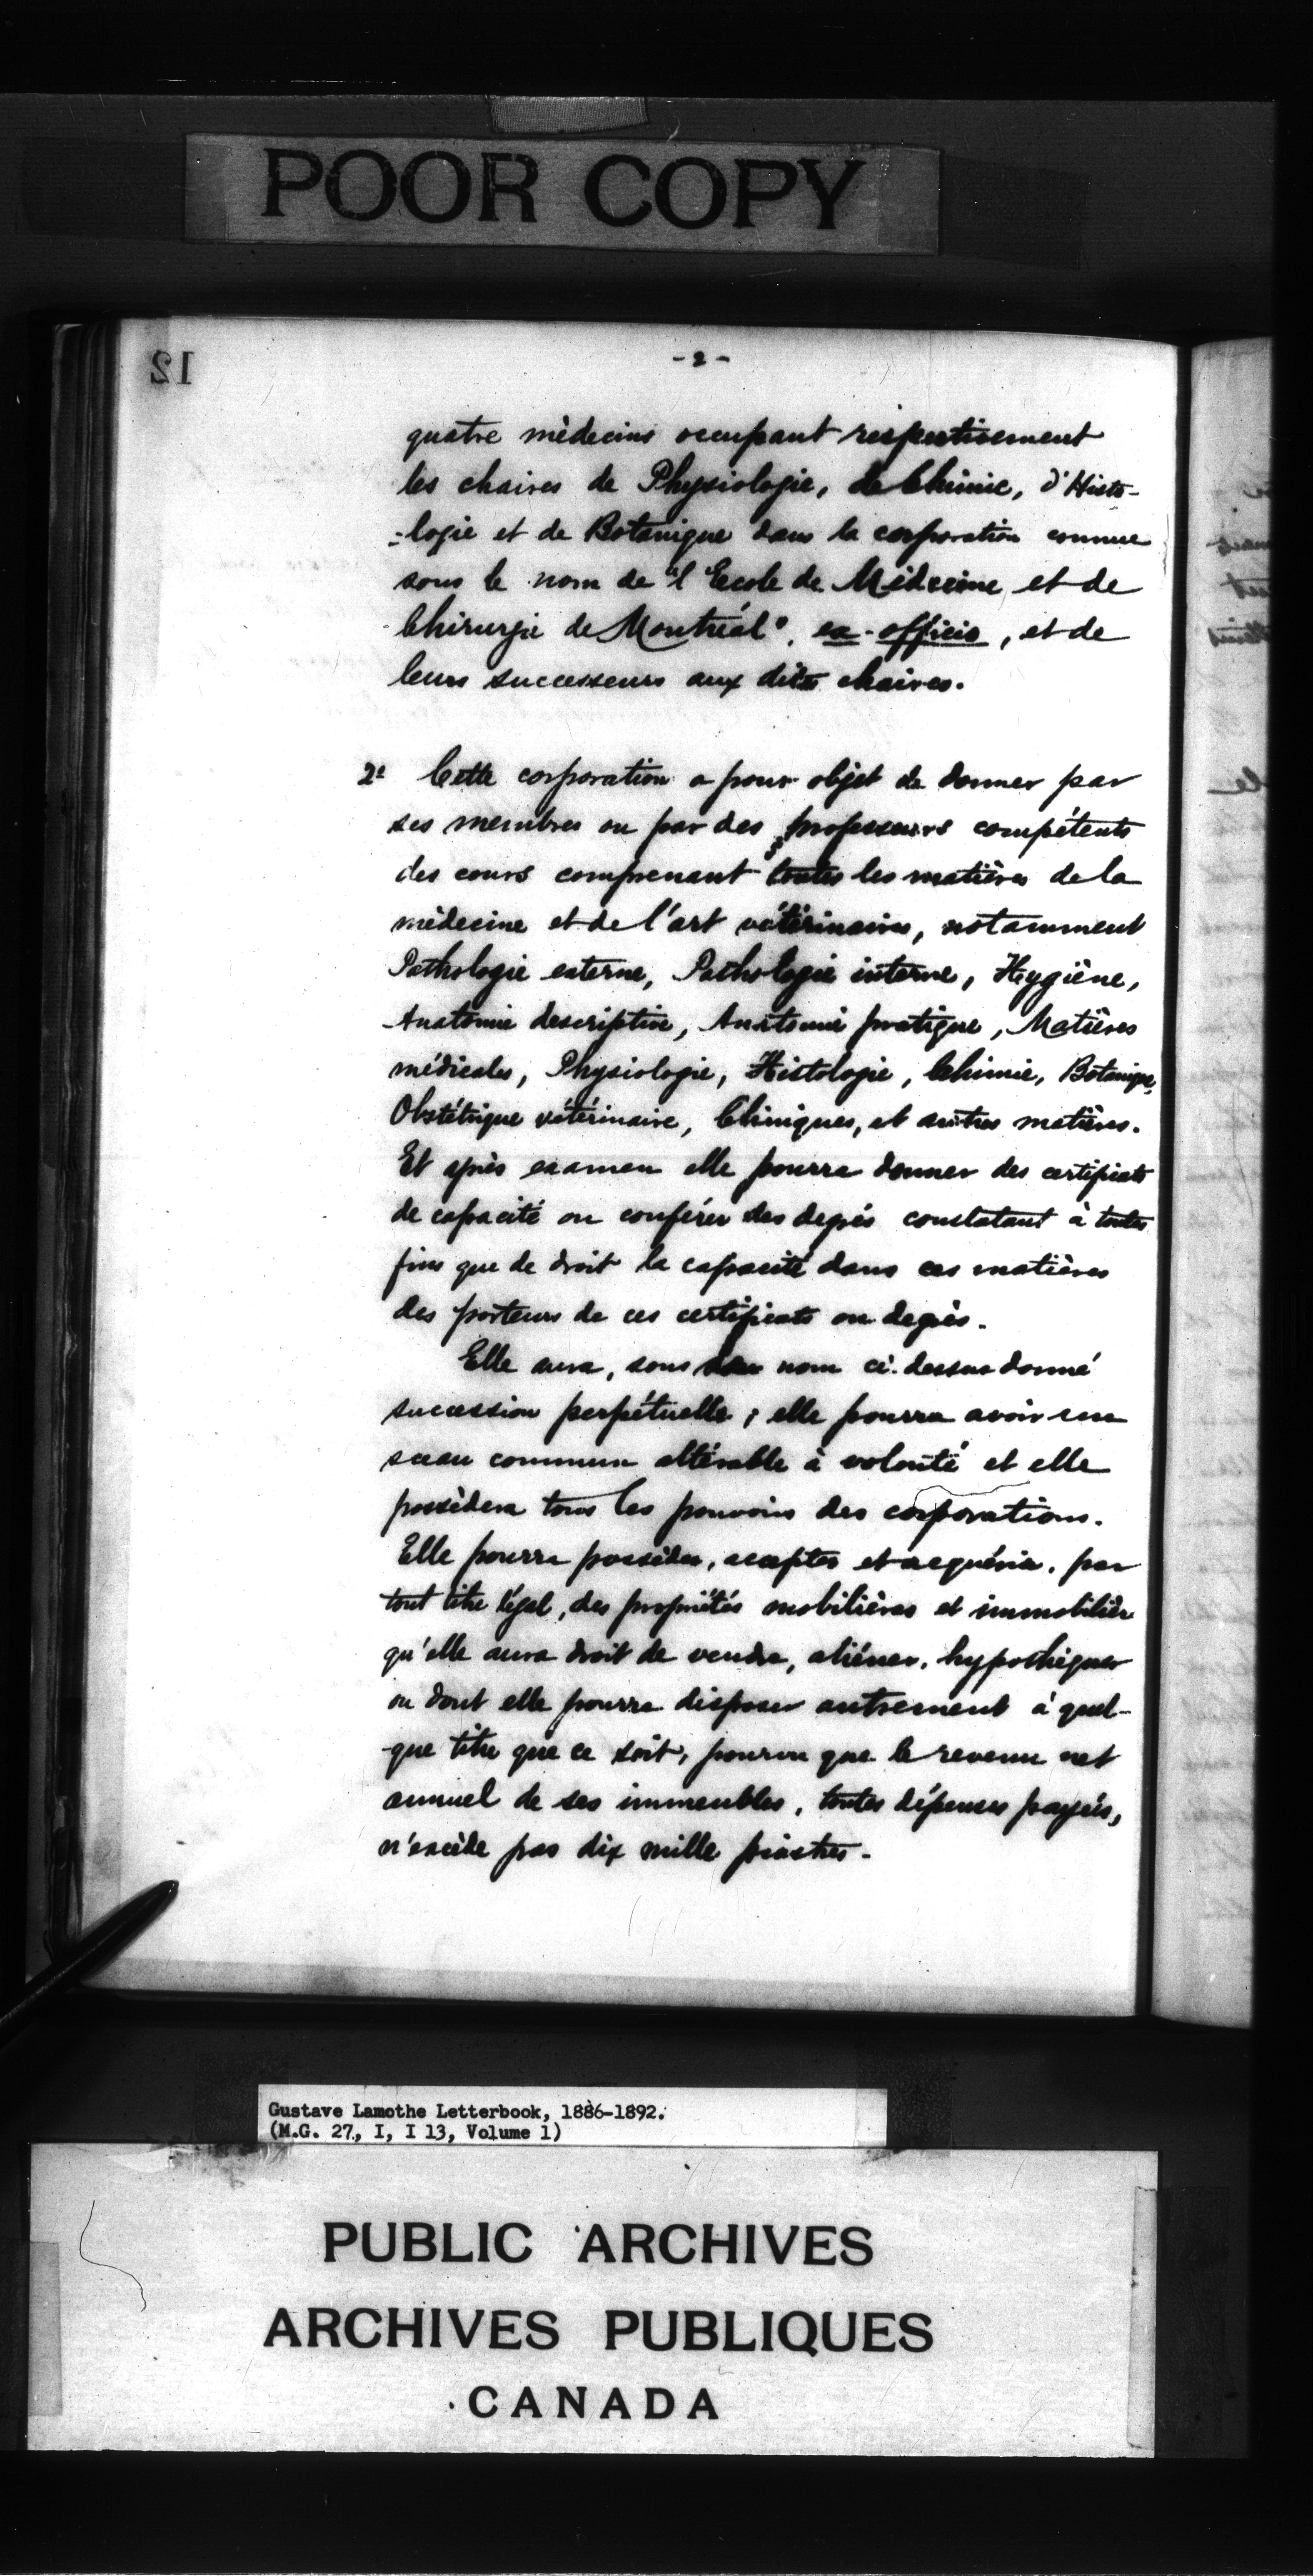 POOR COPY
12
- 2 -
quatre médecins occupant respectivement
les chaires de Physiologie, de Chimie, d'Histo-
-logie et de Botanique dans la corporation connue
sous le nom de "l'Ecole de Médecine et de
Chirurgie de Montréal", ex-officio, et de
leurs successeurs aux dites chaires.
2° Cette corporation a pour objet de donner par
ses membres ou par des professeurs compétents
des cours comprenant toutes les matières de la
médecine et de l'art vétérinaires, notamment
Pathologie externe, Pathologie interne, Hygiène,
Anatomie descriptive, Anatomie pratique, Matières
médicales, Physiologie, Histologie, Chimie, Botanique,
Obstétrique vétérinaire, Cliniques, et autres matières.
Et après examen elle pourra donner des certificats
de capacité ou conférer des degrés constatant à toutes
fins que de droit la capacité dans ces matières
des porteurs de ces certificats ou degrés.
Elle aura, sous nom ci-dessus donné
succession perpétuelle ; elle pourra avoir un
sceau commun altérable à volonté et elle
possèdera tous les pouvoirs des corporations.
Elle pourra posséder, accepter et acquérir, par
tout titre légal, des propriétés mobilières et immobilièr
qu'elle aura droit de vendre, aliéner, hypothéquer
ou dont elle pourra disposer autrement à quel-
-que titre que ce soit, pourvu que le revenu net
annuel de ses immeubles, toutes dépenses payées,
n'excède pas dix mille piastres.
Gustave Lamothe Letterbook, 1886-1892.
(M.G. 27, I, I 13, Volume 1)
PUBLIC ARCHIVES
ARCHIVES PUBLIQUES
CANADA